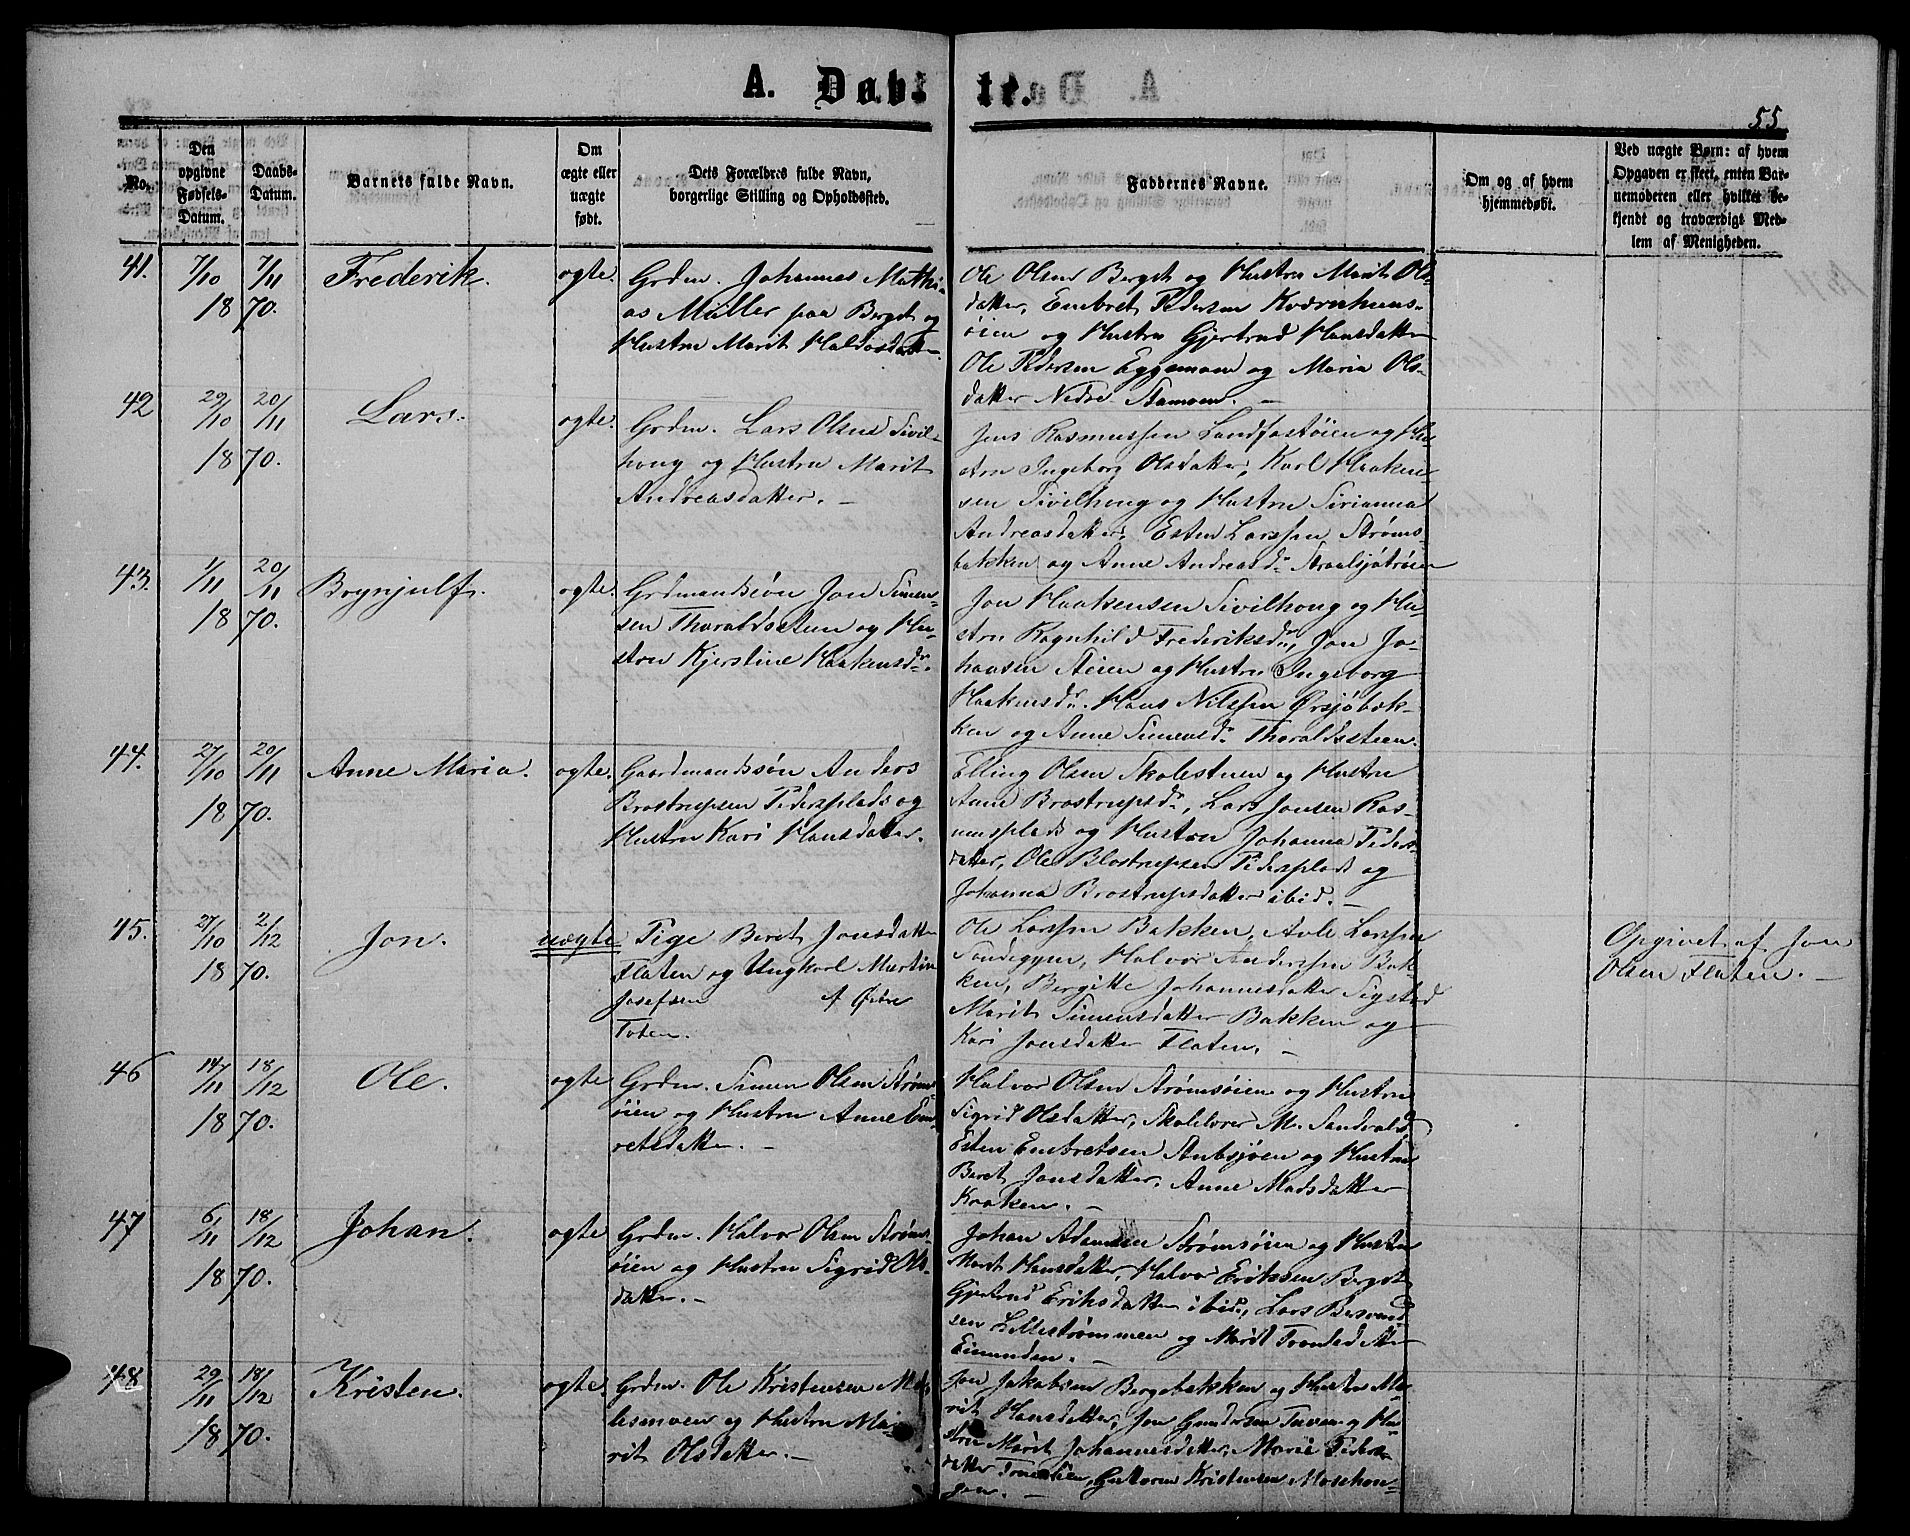 A. Døbte.
55
No.
Den opgivne Fødsels-Datum.
Daabs-Datum.
Barnets fulde Navn.
Om ægte eller uægte født.
Dets Forældres fulde Navn, borgerlige Stilling og Opholdssted.
Faddernes Navne.
Om og af hvem hjemmedøbt.
Ved uægte Børn: af hvem Opgaven er skeet, enten Barnemoderen eller hvilket bekjendt og troværdigt Medlem af Menigheden.
41. 7/10 7/11 1870. Frederik. ægte.
Grdm. Johannes Mathi-
as Müller paa Berget og
Hustru Marit Haldosdatter
Ole Olsen Berget og Hustru Marit Ols-
datter, Embret Pedersen Kværnhuus-
øien og Hustru Gjertrud Hansdatter
Ole Pedersen Eggemoen og Maria Ols-
datter Nedre Stamoen. -
42 29/10 20/11 1870. Lars. ægte.
Grdm. Lars Olsen Sivil-
hong og Hustru Marit
Andreasdatter. -
Jens Rasmussen Landfastøien og Hu-
stru Ingeborg Olsdatter, Karl Haaken-
sen Sivilhong og Hustru Sirianna
Andreasdatter, Esten Larssen Strøms-
bakken og Anne Andreasdr.
43. 1/11 20/11 1870. Brynjulf. ægte.
Grdmandssøn Jon Simen-
sen Tharaldsteen og Hu-
stru Kjerstine Haakensdr.
Jon Haakensen Sivilhong og Hu-
stru Ragnhild Frederiksdr., Jon Jo-
hansen Aeien og Hustru Ingeborg
Haakensdr. Hans Nilssen Ørsjøbak-
ken og Anne Simensdr. Tharaldsteen.
44. 27/10 20/11 1870. Anne Maria. ægte.
Gaardmandssøn Anders
Brostrupsen Pedersplads og
Hustru Kari Hansdatter.
Elling Olsen Skolestuen og Hustru
Anne Brostrupsdr., Lars Jonsen Ras-
musplads og Hustru Johanna Peders-
datter, Ole Blostrupsen Pedersplads og
Johanna Brostrupsdatter ibid. -
45. 27/10 2/12 1870. Jon. uægte
Pige Beret Jonsdatter
Flaten og Ungkarl Martin
Josefsen af Østre
Toten.
Ole Larssen Bakken, Avle Larssen
Halvor Anderssen Bak-
ken, Bergitte Johannesdatter Sigstad
Marit Simensdatter Bakken og
Kari Jonsdatter Flaten. -
Opgivet af Jon
Olsen Flaten. -
46 14/11 18/12 1870. Ole. ægte
Grdm. Simen Olsen Strøms-
øien og Hustru Anne Em-
retsdatter. -
Halvor Olsen Strømsøien og Hustru
Sigrid Olsdatter, Skolelærer M. Sandvold,
Esten Embretsen Aubsjøen og Hustru
Beret Jonsdatter, Anne Madsdatter
Kroken. -
47 6/11 18/12 1870. Johan. ægte
Grdm. Halvor Olsen Strøms-
øien og Hustru Sigrid Ols-
datter. -
Johan Adamsen Strømsøien og Hustru
Marit Hansdatter, Halvor Erikssen Berget
Gjertrud Eriksdatter ibid., Lars
sen Lillestrømmen og Marit
Eimunden. -
48 29/11 18/12 1870. Kristen. ægte.
Grdm. Ole Kristensen
og Hustru Ma-
rit Olsdatter. -
Jon Jakobsen Bergebakken og Hustru Ma-
rit Hansdatter, Jon Gundersen Tuven og Hu-
stru Marit Johannesdatter, Marie Peders-
datter Guttorm Kristensen Mosehon-
gen. -